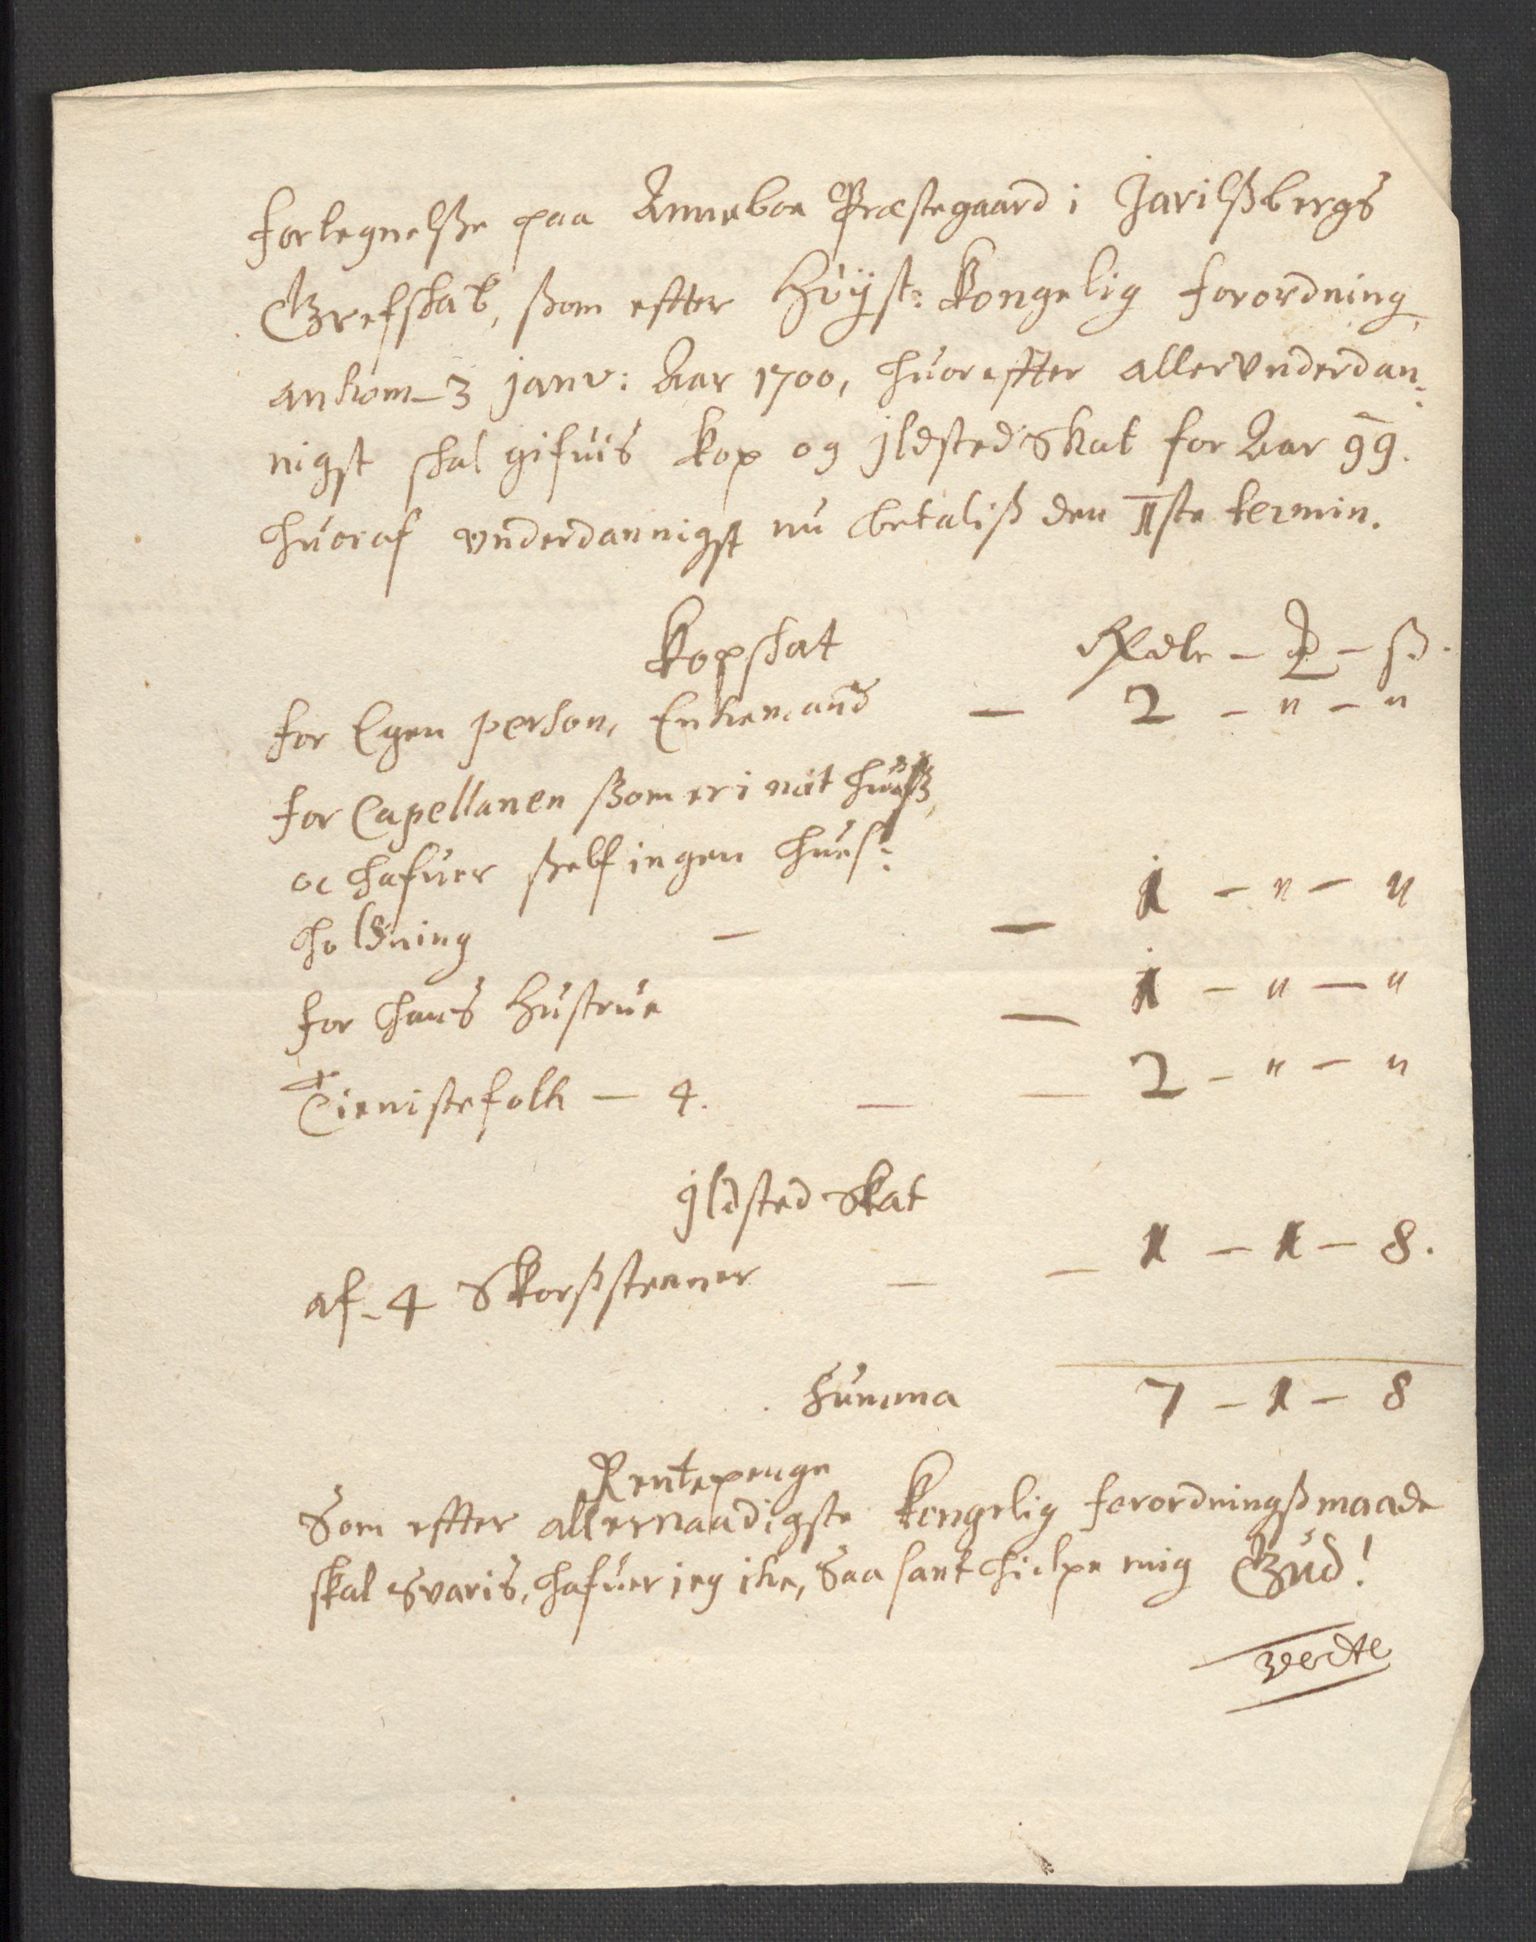 Fortegnelsße paa Anneboe Præstegaard i Jarilßbergs
Grefskab, ßom efter Höÿst: Kongelig forordning
ankom 3 janv: Aar 1700, huorefter allervnderdan:
nigst skal gifuis Kop og jldsted Skat for Aar 99.
huoraf vnderdannigst nu betaliß den IIste termin.
Kopskat Rxdlr - ß.
for Egen person, Enkemand — 2 - " - "
for Capellanen ßom er i mit huuß,
oc hafuer ßelf ingen hues:
holdning — — 1 - " - "
for hans Hustrue — 1 - " - "
Tienistefolk — 4. — — 2 - " - "
jldsted Skat
af - 4 Skorßsteener — — 1 - 1 - 8.
Summa 7 - 1 - 8
Rentepenge
Som efter allernaadigste Kongelig forordningß maade
skal svaris, hafuer jeg ike, Saa sant hielpe mig Gud!
verte